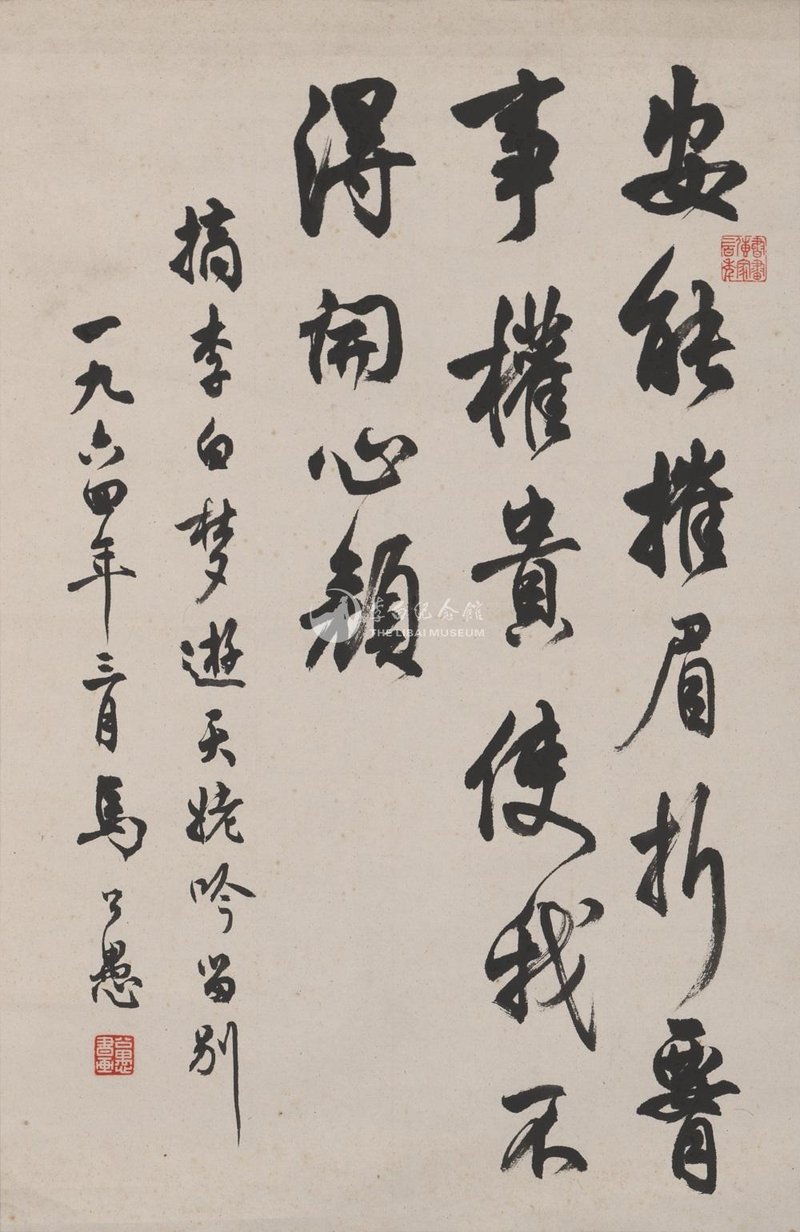 安能摧眉折腰
事權貴使我不
得開心顏
摘李白梦遊天姥吟留别
一九六四年三月馬公愚
公愚書画
李白纪念館
THE LIBAI MUSEUM